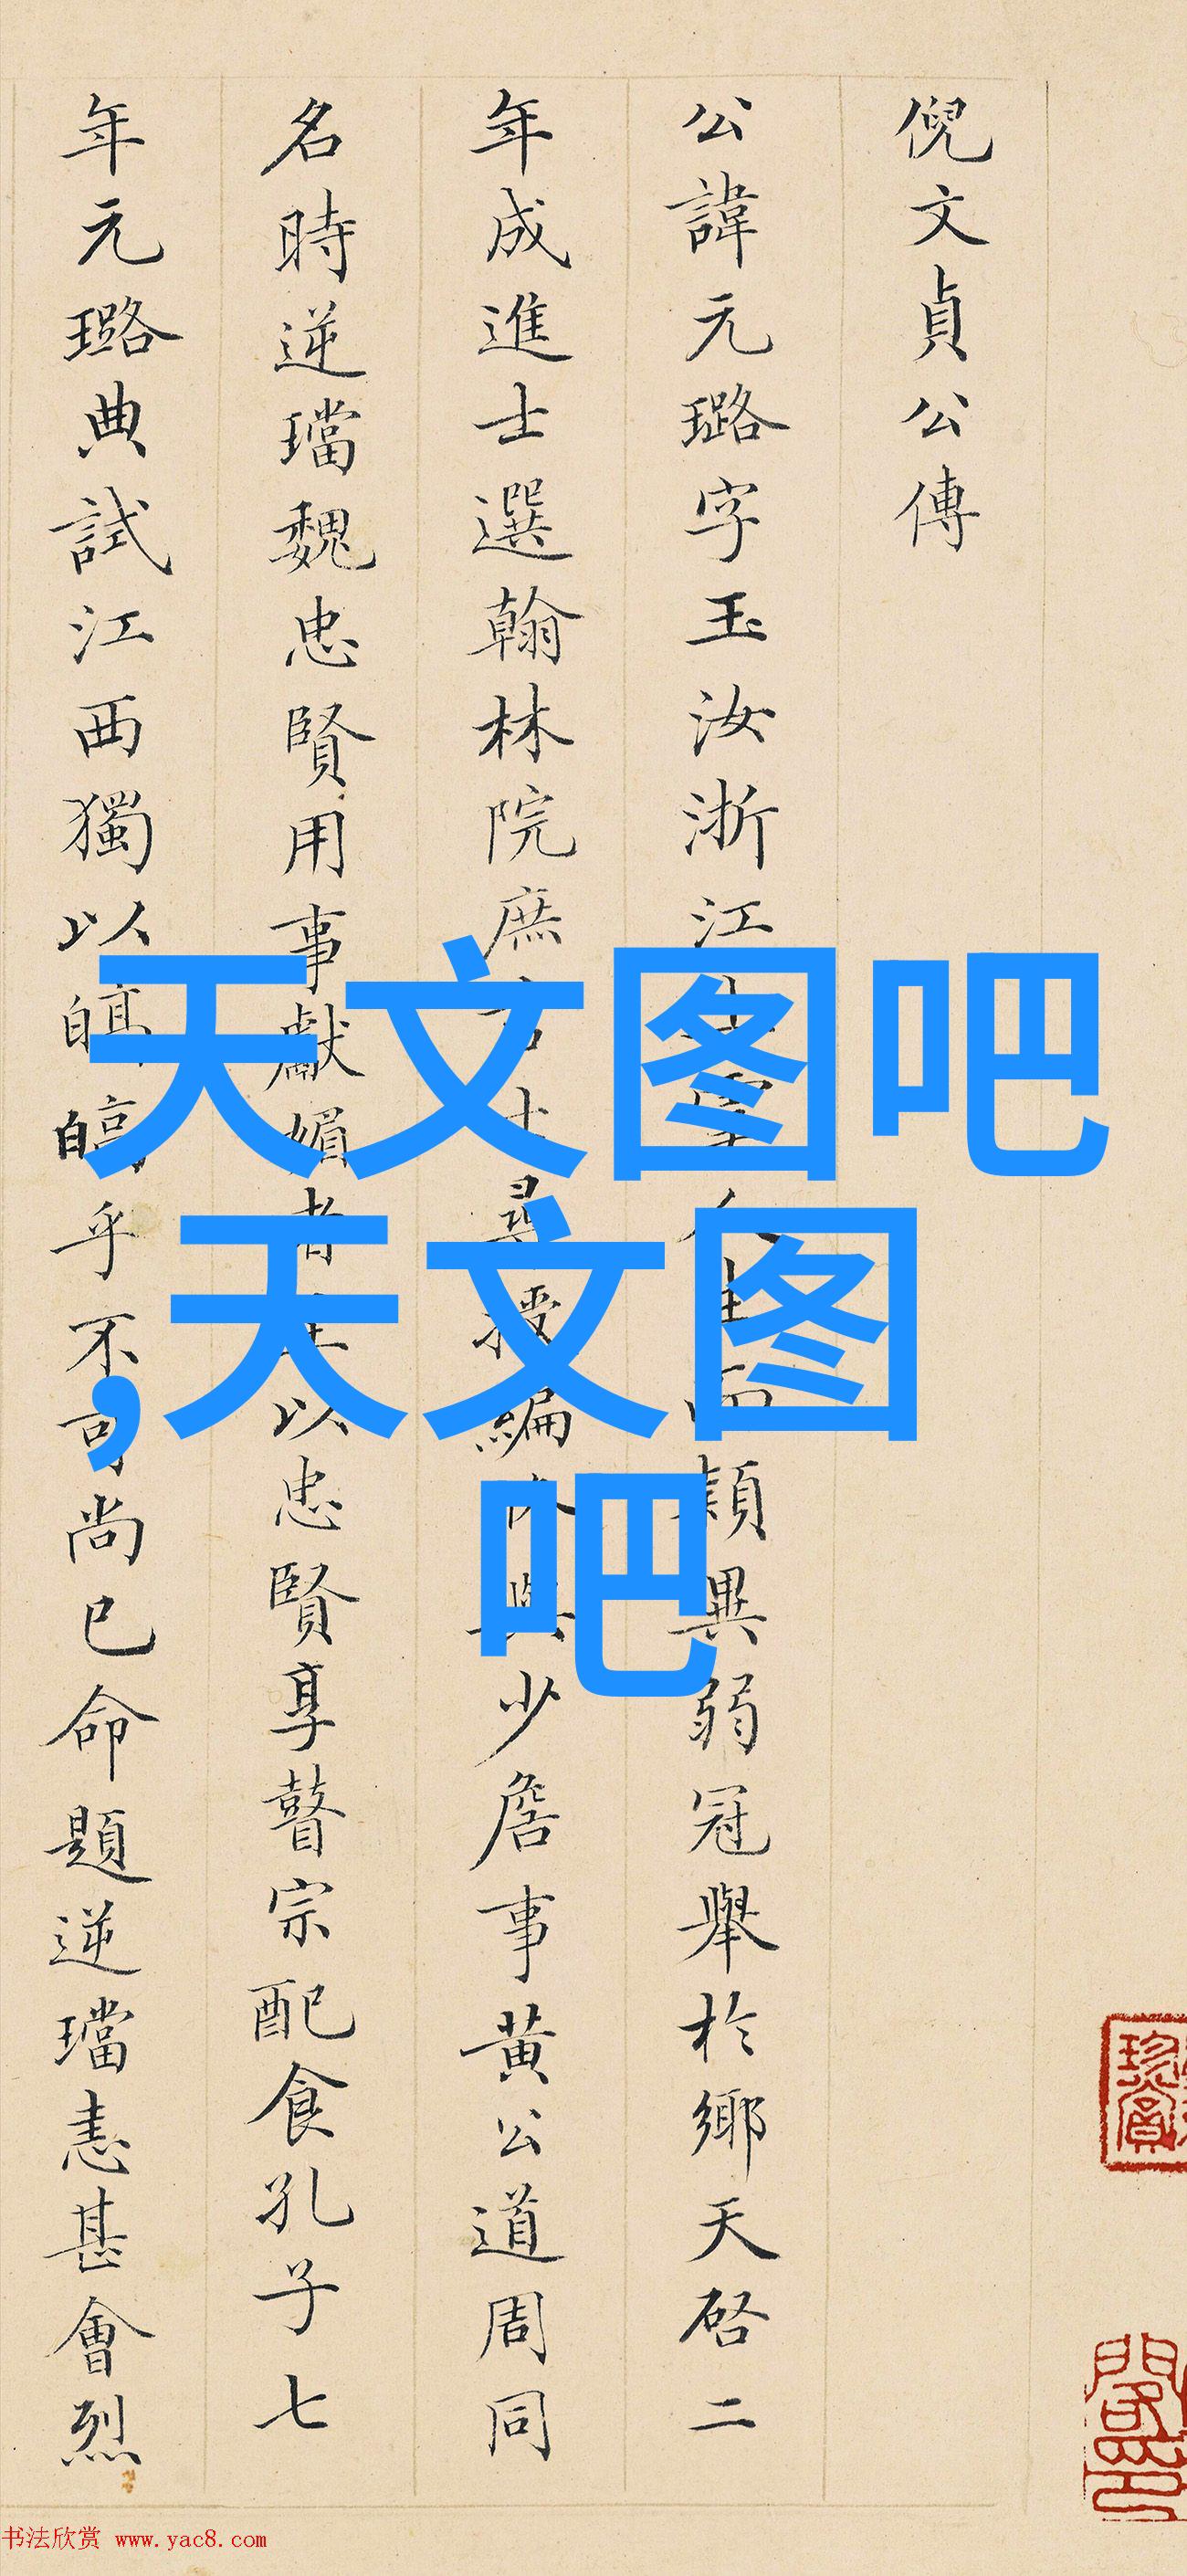 倪文貞公傳
公諱元璐字玉汝浙江上虞人生而穎異弱冠舉於鄉天啓二
年成進士選翰林院庶吉士尋授編修與少詹事黃公道周同
名時逆璫魏忠賢用事獻媚者至以忠賢享瞽宗配食孔子七
年元璐典試江西獨以皜皜乎不可尚已命題逆璫恚甚會烈
天文图吧
,天文图
吧
珍賞
书法欣赏 www.yac8.com